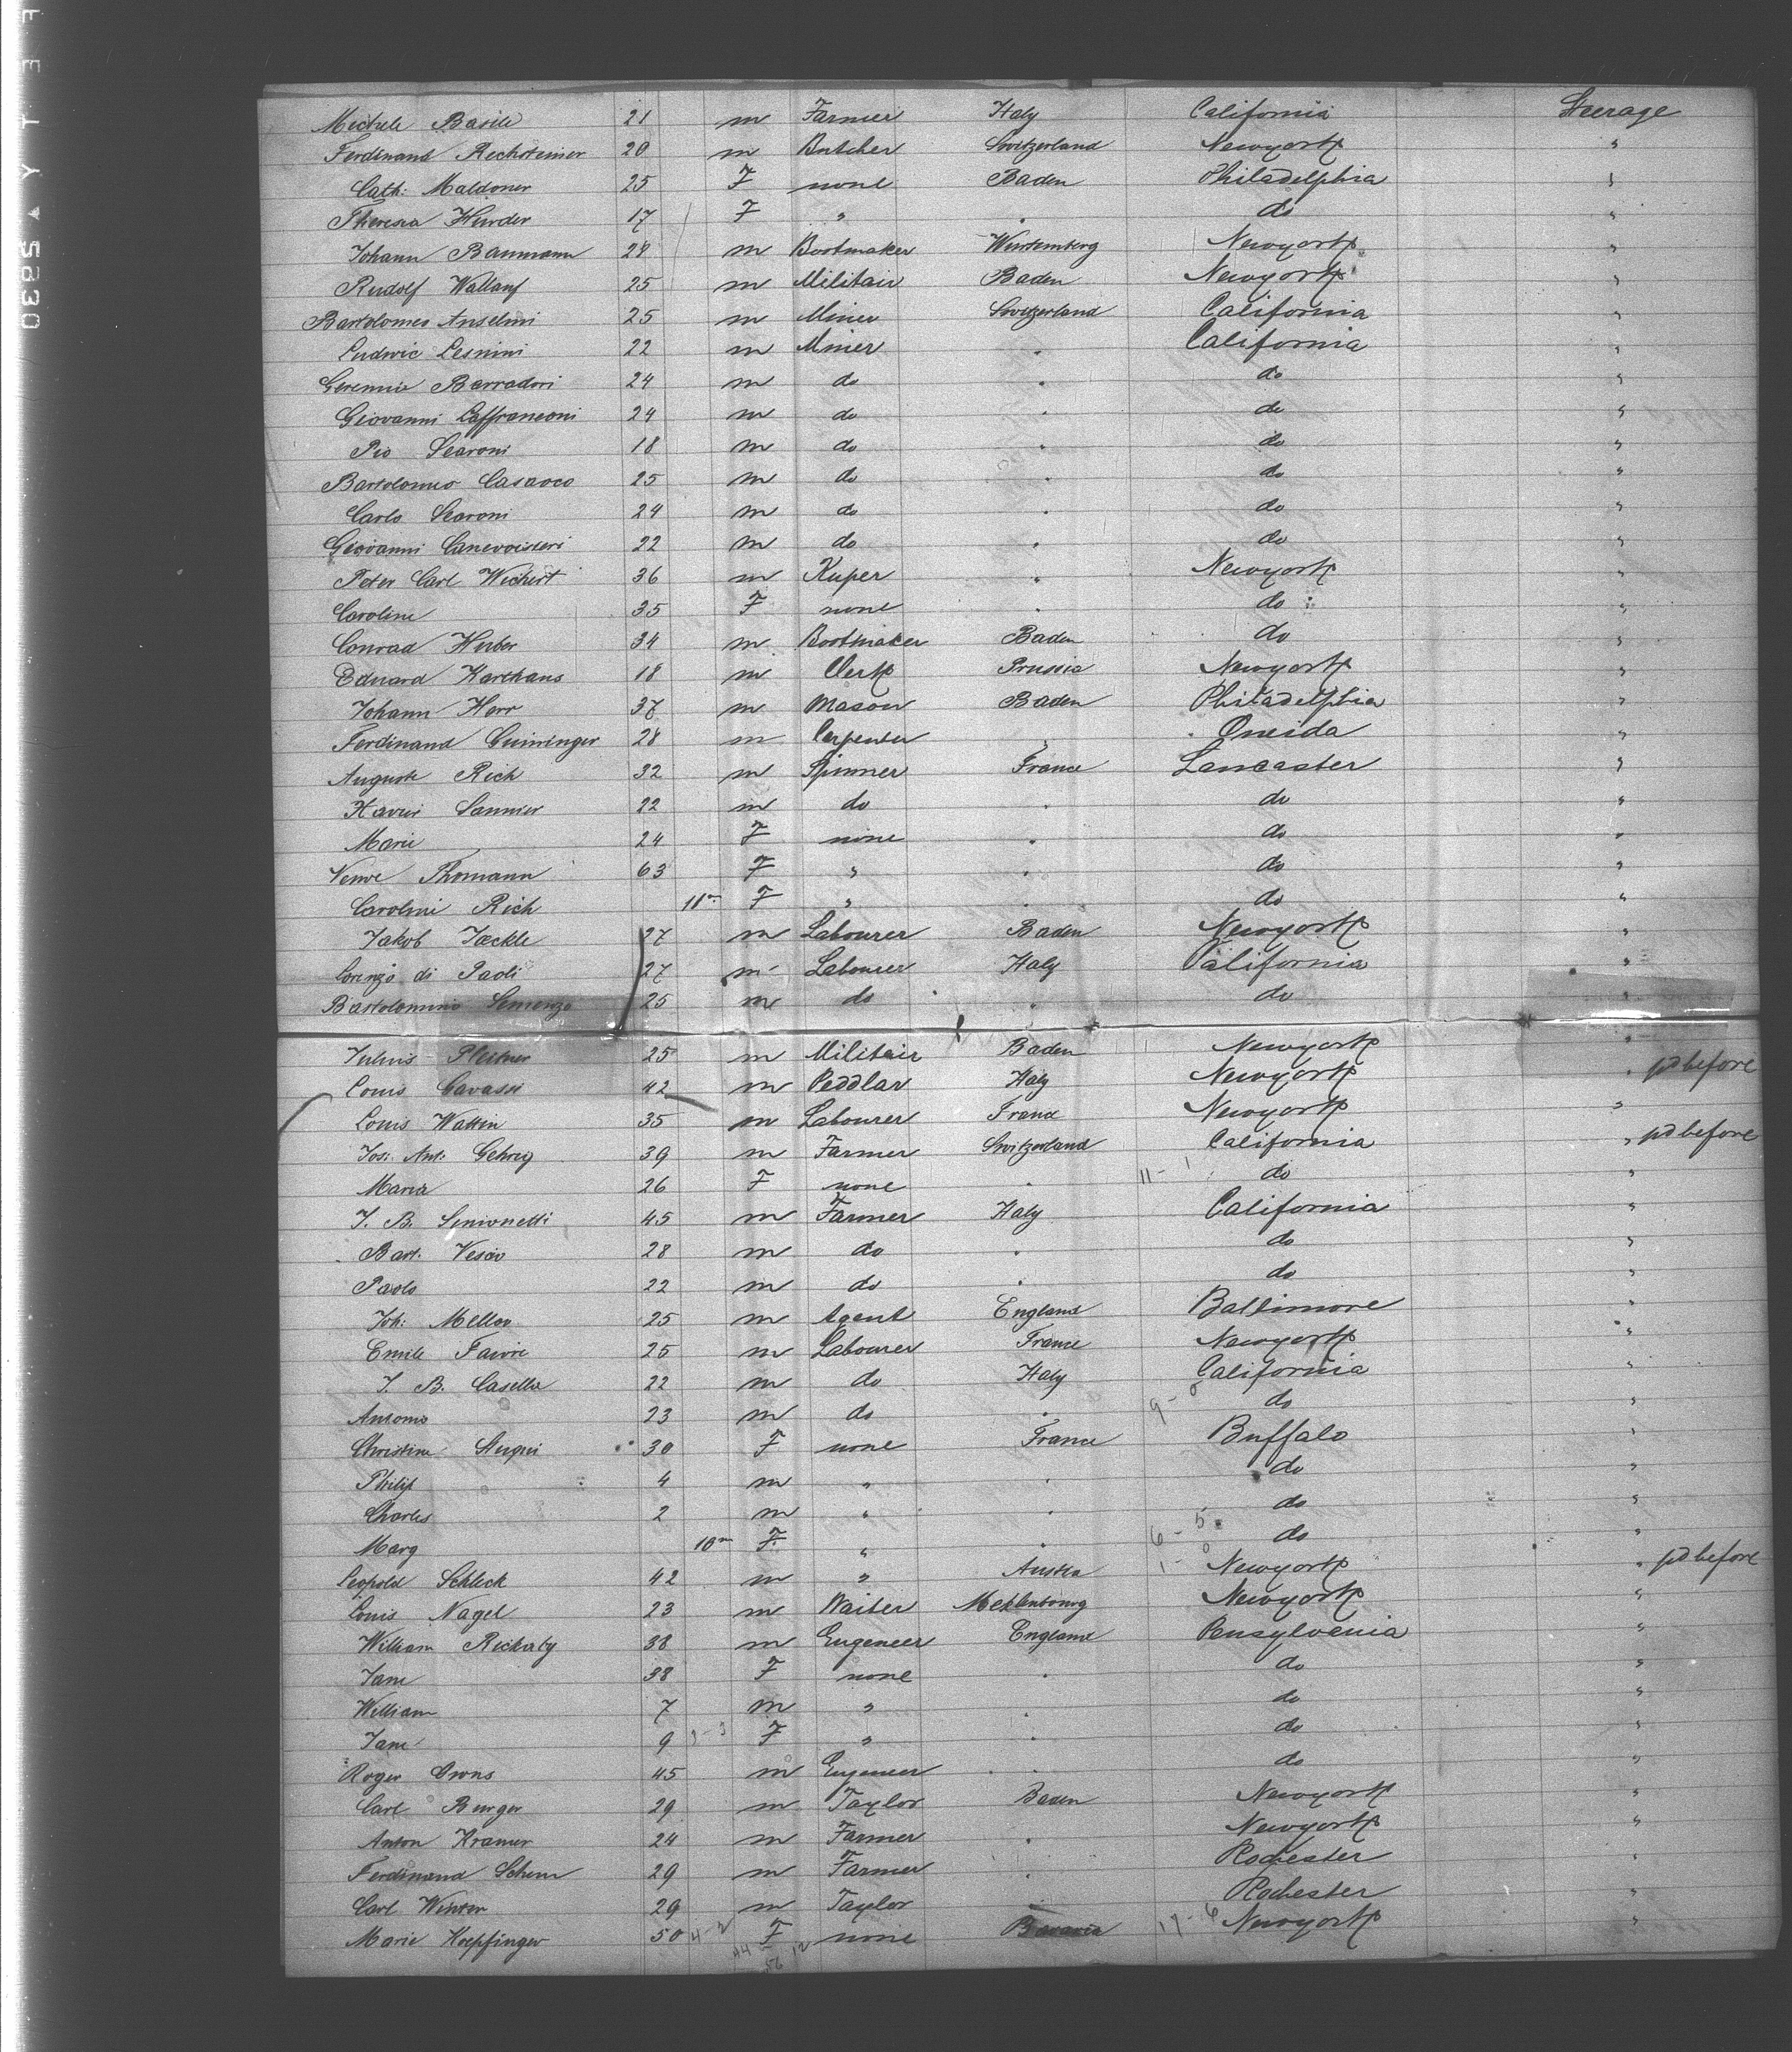 Michele Basile 21 m Farmer Italy California Steerage
Ferdinand Rechsteiner 20 m Butcher Switzerland Newyork "
Cath. Maldoner 25 F none Baden Philadelphia "
Theresia Hurder 17 F " " do "
Johann Baumann 28 m Bootmaker Wurtemberg Newyork "
Rudolf Wallauf 25 m Militair Baden Newyork "
Bartolomeo Anselmi 25 m Miner Switzerland California "
Ludwic Lesnini 22 m Miner " California "
Geremia Barradori 24 m do " do "
Giovanni Zaffranconi 24 m do " do "
Pio Scaroni 18 m do " do "
Bartolomeo Casacca 25 m do " do "
Carlo Scaroni 24 m do " do "
Giovanni 22 m do " do "
Peter Carl Wichert 36 m Kuper " Newyork "
Caroline 35 F none " do "
Conrad Huber 34 m Bootmaker Baden do "
Eduard Karthaus 18 m Clerk Prussia Newyork "
Johann Herr 37 m Mason Baden Philadelphia "
Ferdinand 28 m Carpenter " Oneida "
Auguste Rich 32 m Spinner France Lancaster "
Xavier Sannier 22 m do " do "
Marie 24 F none " do "
Veuve Thomann 63 F " " do "
Caroline Rich 11m F " " do "
Jakob Jaeckle 27 m Labourer Baden Newyork "
Lorenzo di Paoli 27 m Labourer Italy California "
Bartolomino Semenzo 25 m do " do "
Julius Pleitner 25 m Militair Baden Newyork "
Louis Cavassi 42 m Peddlar Italy Newyork " pd before
Louis Wattin 35 m Labourer France Newyork "
Jos. Ant. Gehrig 39 m Farmer Switzerland California " pd before
Maria 26 F none " 11-1 do "
J. B. Simonetti 45 m Farmer Italy California "
Bart. Vescio 28 m do " do "
Paolo 22 m do " do "
Joh. Mellor 25 m Agent England Baltimore "
Emile Faivre 25 m Labourer France Newyork "
J. B. Casella 22 m do Italy California "
Antonio 23 m do " do "
Christine 30 F none France Buffalo "
Philip 4 m " " do "
Charles 2 m " " do "
Marg 10m F " " 6-5 do "
Leopold Schleck 42 m " Austria 1-0 Newyork " pd before
Louis Nagel 23 m Waiter Meklenbourg Newyork "
William Rickaby 38 m Eugeneer England Pensylvania "
Jane 38 F none " do "
William 7 m " " do "
Jane 9 F " " do "
Roger Orons 45 m Eugeneer " do "
Carl Burger 29 m Taylor Baden Newyork "
Anton Kramer 24 m Farmer " Newyork "
Ferdinand Schum 29 m Farmer " Rochester "
Carl Winter 29 m Taylor " Rochester "
Marie Hoepfinger 50 4-2 F none Bavaria 17-6 Newyork "
44 12
56